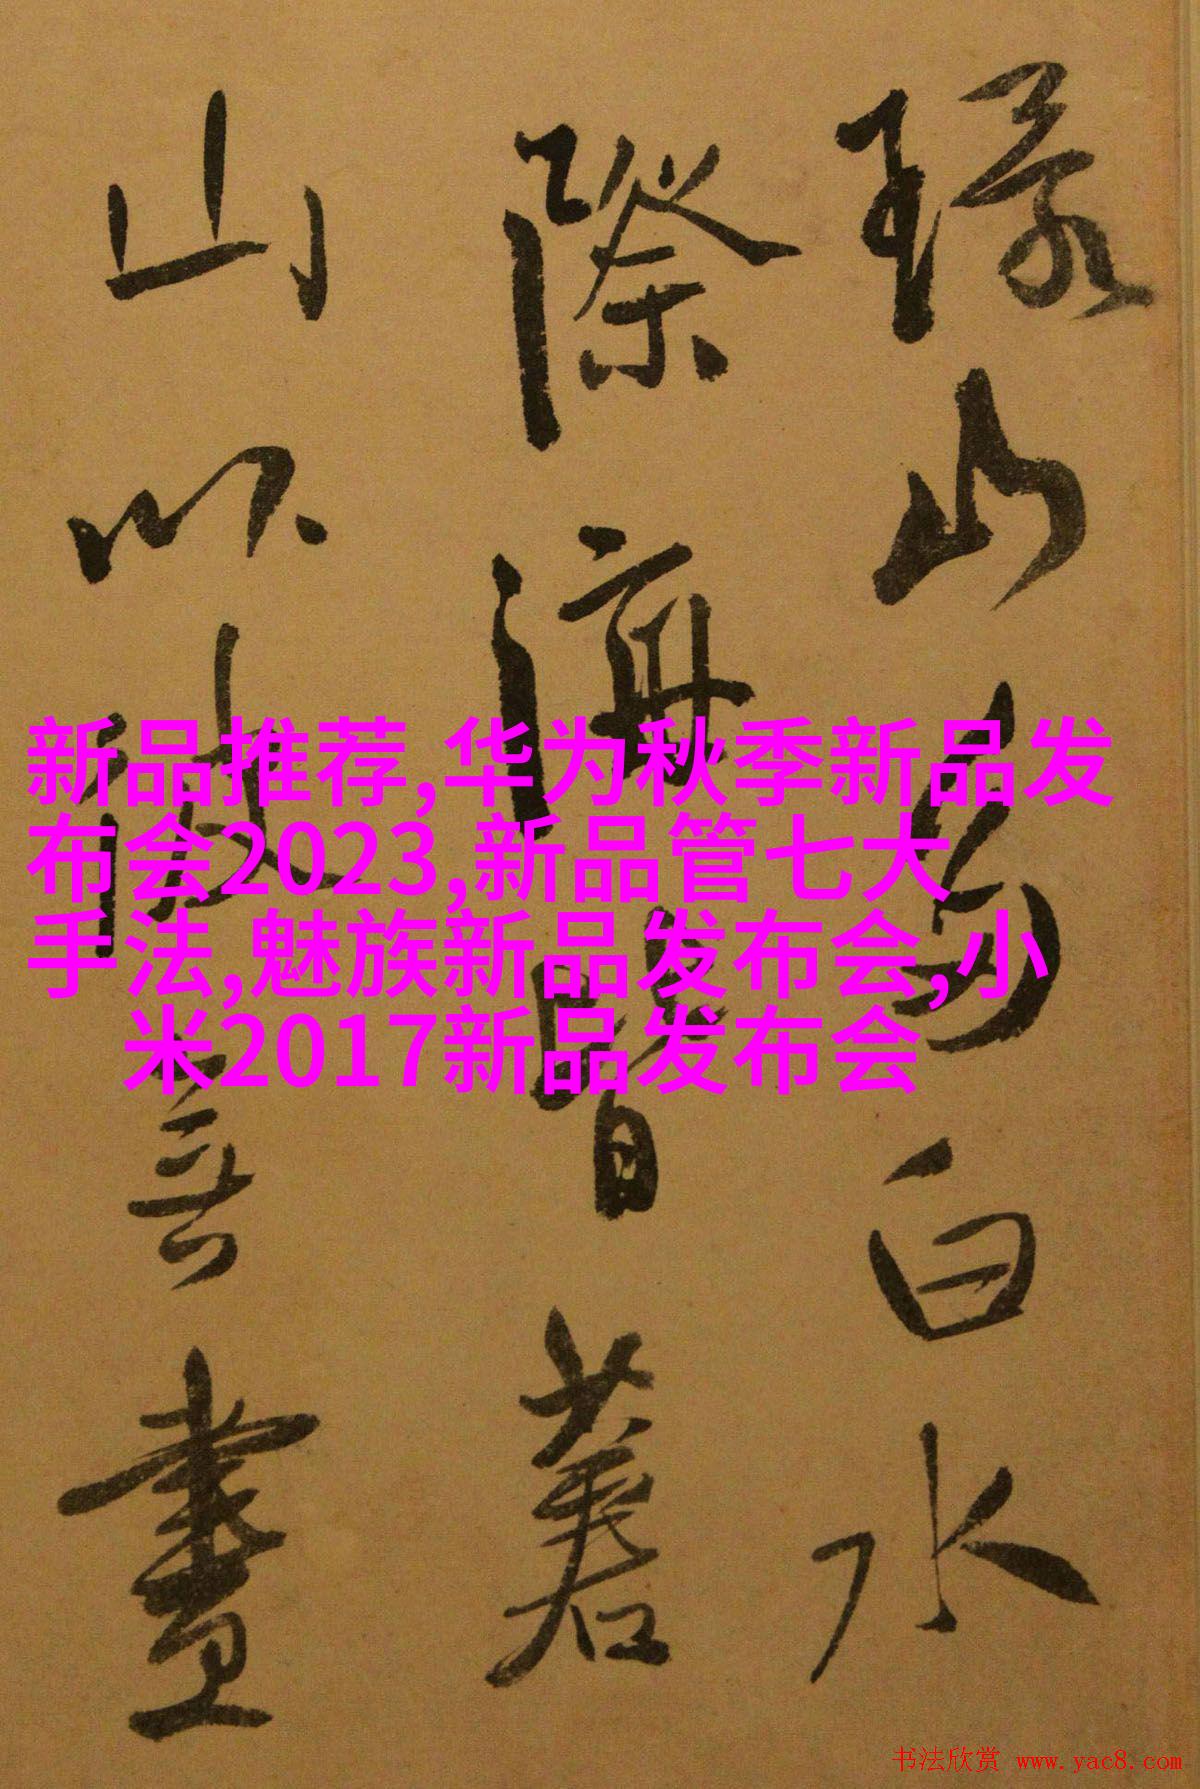 新品推荐,华为秋季新品发
布会2023,新品管七大
手法,魅族新品发布会,小
米2017新品发布会
山白水
際海皆
山以畫
书法欣赏 www.yac8.com